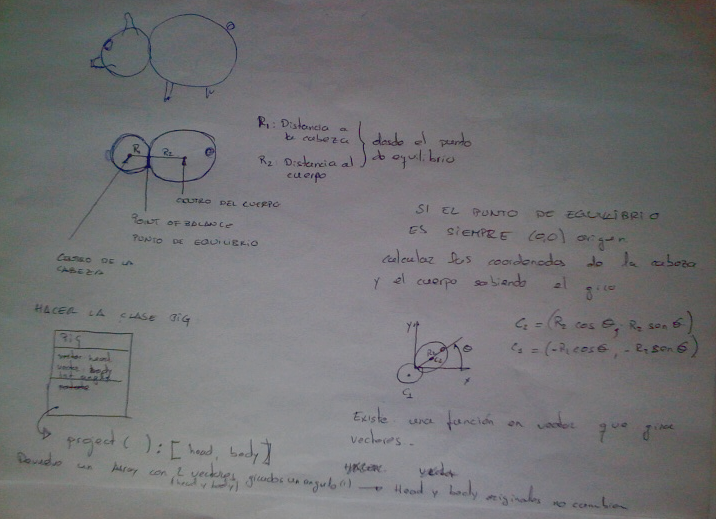 R₁: Distancia a
la cabeza
R₂ Distancia al
cuerpo
desde el punto
de equilibrio
R₁
R₂
CENTRO DEL CUERPO
POINT OF BALANCE
PUNTO DE EQUILIBRIO
CENTRO DE LA
CABEZA
SI EL PUNTO DE EQUILIBRIO
ES SIEMPRE (0,0) origen
calcular las coordenadas de la cabeza
y el cuerpo sabiendo el giro
C₂ = (R₂ cos θ, R₂ sen θ)
C₂ = (-R₁ cos θ, -R₁ sen θ)
y
θ
x
C₁
HACER LA CLASE BIG
BIG
vector head
vector body
int angle
project ( ) : [head, body]
Devuelve un Array con 2 vectores girados un angulo
(head y body)
Existe una función en vector que gira
vectores.
vector
→ Head y body originales no cambian